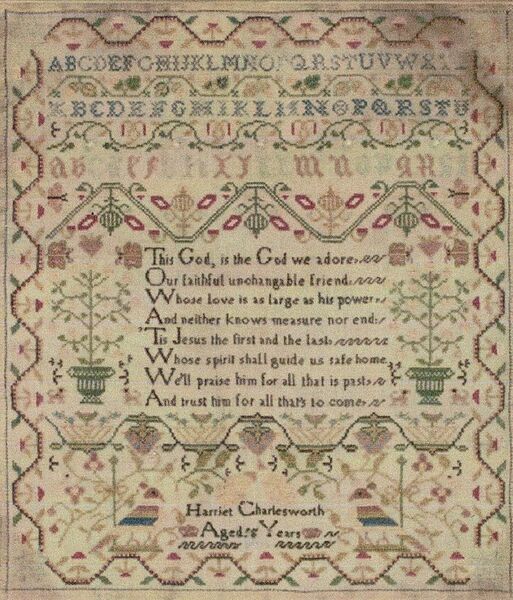 ABCDEFGHIJKLMNOPQRSTUVWX
ABCDEFGHIKLMNOPQRSTU
This God, is the God we adore
Our faithful unchangable friend
Whose love is as large as his power
And neither knows measure nor end:
'Tis Jesus the first and the last
Whose spirit shall guide us safe home
We'll praise him for all that is past
And trust him for all that's to come
Harriet Charlesworth
Aged 8 Years